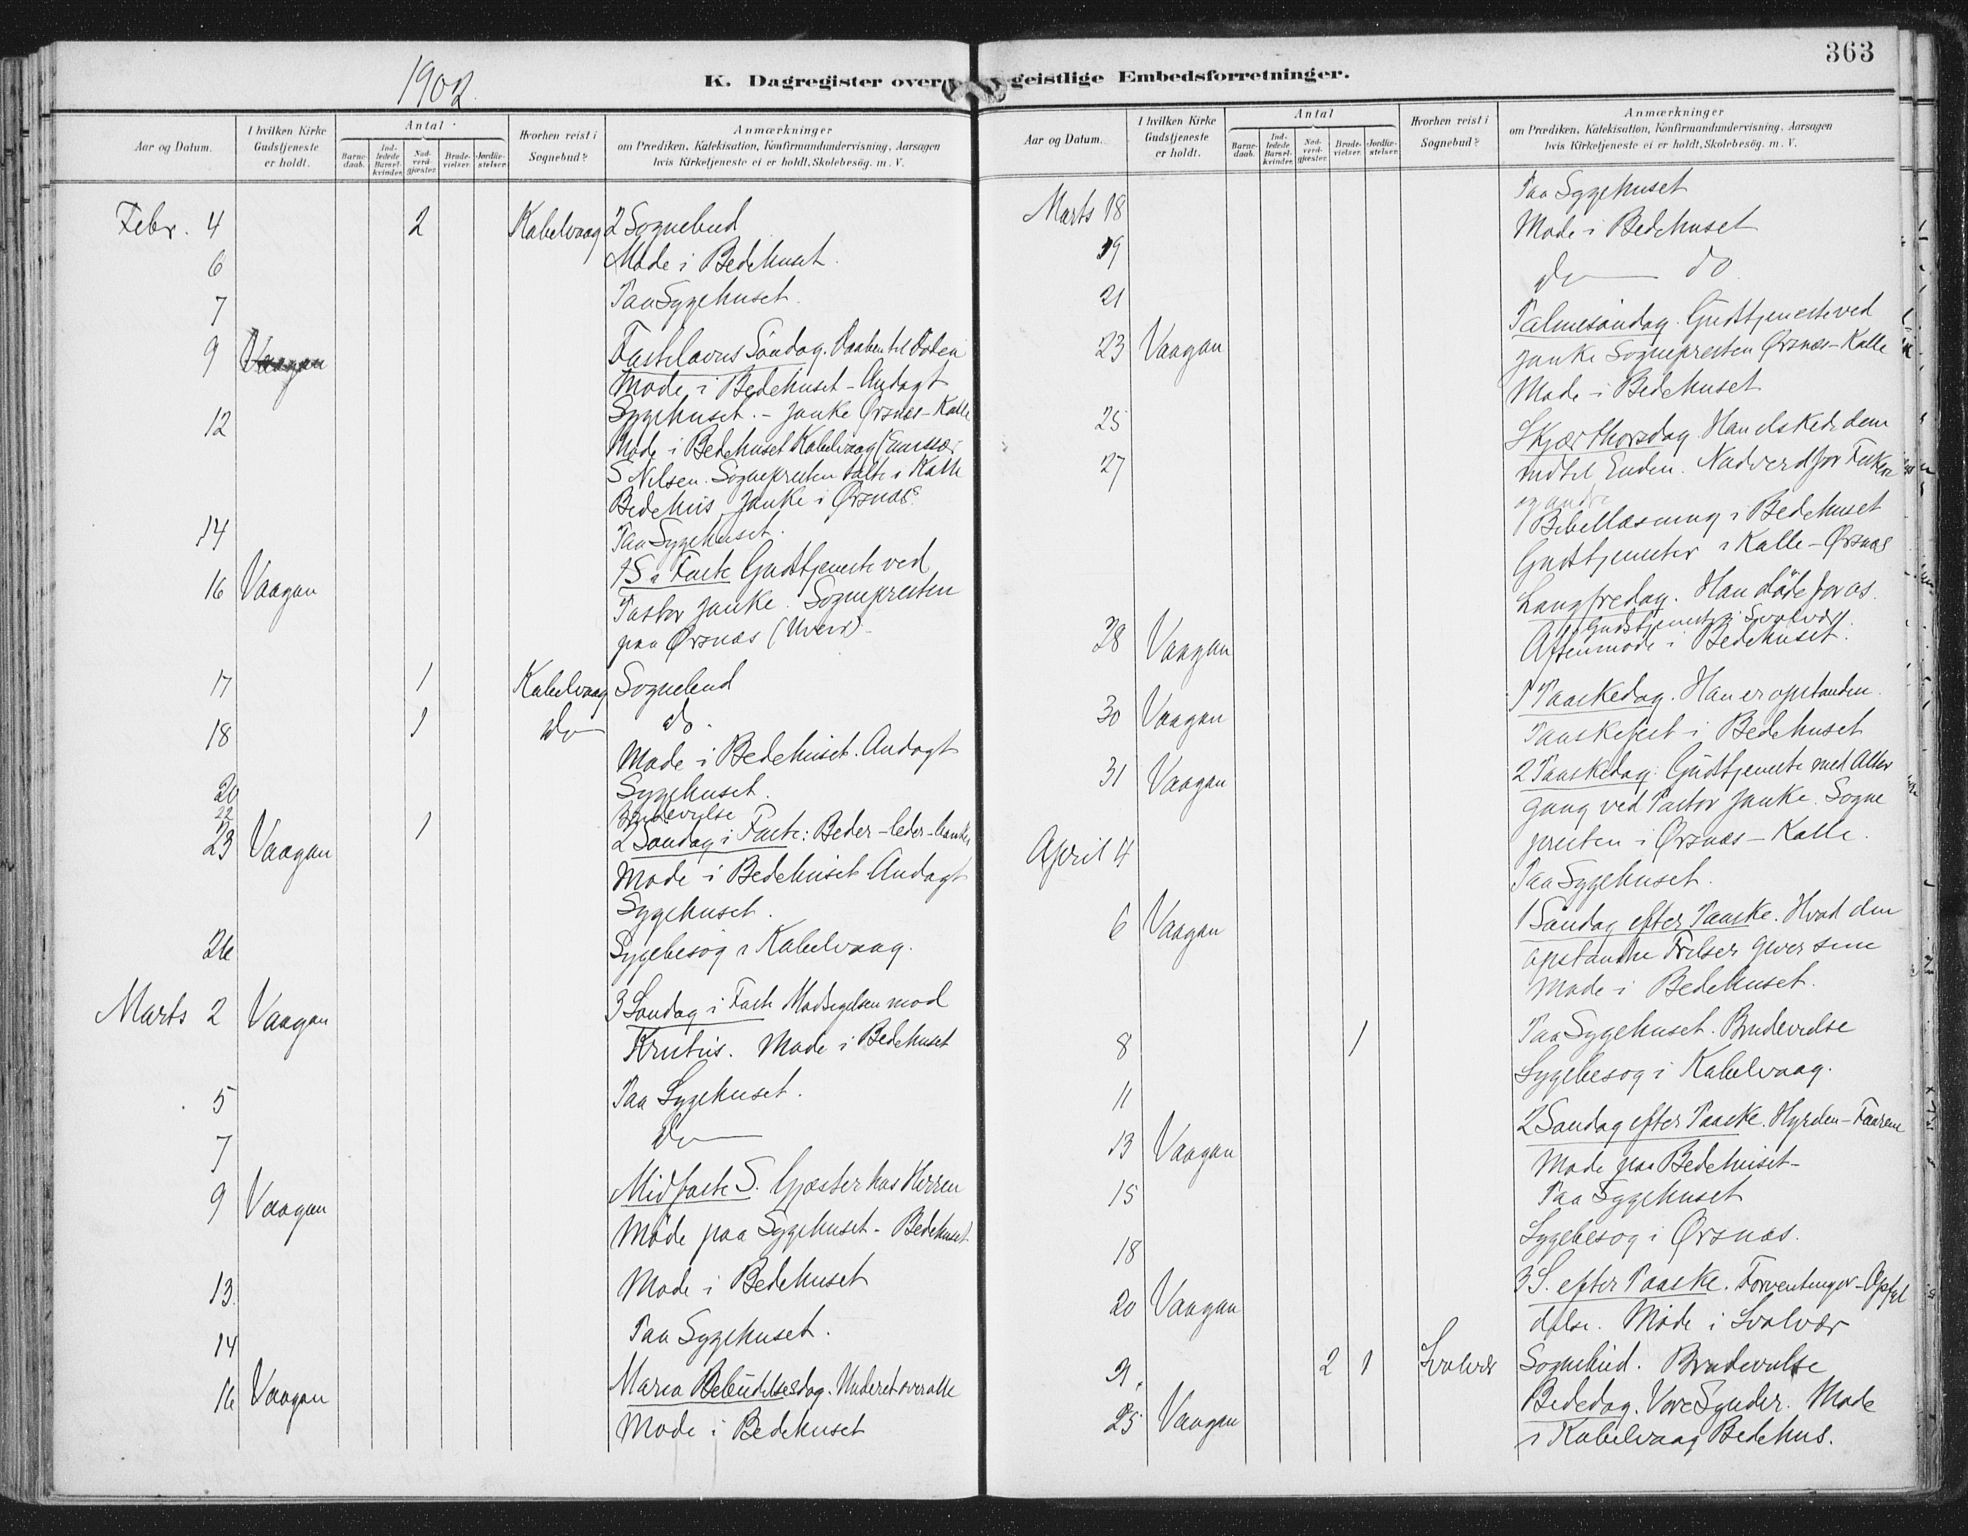 363
1902.
K. Dagregister over geistlige Embedsforretninger.
Aar og Datum.
I hvilken Kirke Gudstjeneste er holdt.
Antal
Barnedaab.
Indledede Barselkvinder.
Nadverdgjæster.
Brudevielser.
Jordfæstelser.
Hvorhen reist i Sognebud?
Anmærkninger
om Prædiken, Katekisation, Konfirmandundervisning, Aarsagen
hvis Kirketjeneste ei er holdt, Skolebesøg. m. V.
Febr. 4 2 Kabelvaag 2 Sognebud
6 Møde i Bedehuset.
7 Paa Sygehuset.
9 Vaagan Fastelavns Søndag. Daaben til Døden
Møde i Bedehuset - Andagt
Sygehuset. - Janke Ørsnæs - Kalle
12 Møde i Bedehuset Kabelvaag
S Nilsen. Sognepresten talte i Kalle
Bedehus Janke i Ørsnæs
14 Paa Sygehuset.
16 Vaagan 1 S i Faste Gudstjeneste ved
Pastor Janke. Sognepresten
paa Ørsnæs (Uveir).
17 1 Kabelvaag Sognebud
18 1 do do.
Møde i Bedehuset. Andagt
20 Sygehuset.
22 Brudevielse
23 Vaagan 1 2 Søndag i Faste: Beder - leder - banker
Møde i Bedehuset Andagt
Sygehuset.
26 Sygebesøg i Kabelvaag.
Marts 2 Vaagan 3 Søndag i Faste Modsigelsen mod
Kristus. Møde i Bedehuset
5 Paa Sygehuset.
7 do
9 Vaagan Midfaste S. Gjæster hos Herren
Møde paa Sygehuset - Bedehuset
13. Møde i Bedehuset
14 Paa Sygehuset.
16 Vaagan Maria Bebudelsesdag. Underet over alle
Møde i Bedehuset
Aar og Datum.
I hvilken Kirke Gudstjeneste er holdt.
Antal
Barnedaab.
Indledede Barselkvinder.
Nadverdgjæster.
Brudevielser.
Jordfæstelser.
Hvorhen reist i Sognebud?
Anmærkninger
om Prædiken, Katekisation, Konfirmandundervisning, Aarsagen
hvis Kirketjeneste ei er holdt, Skolebesøg. m. V.
Marts 18 Paa Sygehuset
Møde i Bedehuset
19 do do
21
23 Vaagan Palmesøndag. Gudstjeneste ved
Janke Sognepresten Ørsnæs - Kalle
Møde i Bedehuset
25
27 Skjærthorsdag. Han elskede dem
indtil Enden. Nadverd for Fiskere
og andre
Bibellæsning i Bedehuset
Gudstjenester i Kalle - Ørsnæs
28 Vaagan Langfredag. Han døde for os.
Gudstjeneste i Svolvær.
Aftenmøde i Bedehuset.
30 Vaagan 1 Paaskedag. Han er opstanden.
Paaskefest i Bedehuset
31 Vaagan 2 Paaskedag. Gudstjeneste med Alter
gang ved Pastor Janke. Sogne
presten i Ørsnæs - Kalle.
April 4 Paa Sygehuset.
6 Vaagan 1 Søndag efter Paaske. Hvad den
opstandne Frelser giver sine
Møde i Bedehuset.
8 1 Paa Sygehuset. Brudevielse
11 Sygebesøg i Kabelvaag.
13 Vaagan 2 Søndag efter Paaske. Hyrden - Faarene
Møde paa Bedehuset -
15 Paa Sygehuset
18 Sygebesøg i Ørsnæs.
20 Vaagan 3 S. efter Paaske. Forventninger - Opfyl
delse. Møde i Svolvær
21. 2 1 Svolvær Sognebud. Brudevielse
25 Vaagan Bededag. Vore Synder. Møde
i Kabelvaag Bedehus.